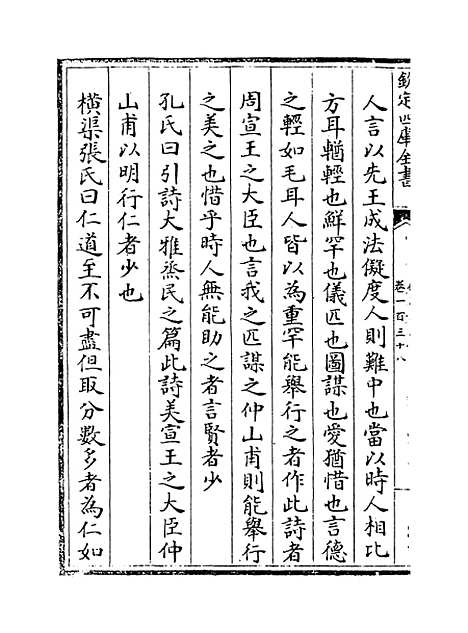 欽定四庫全書
卷一百三十八
人言以先王成法儗度人則難中也當以時人相比
方耳輶輕也鮮罕也儀匹也圖謀也愛猶惜也言德
之輕如毛耳人皆以為重罕能舉行之者作此詩者
周宣王之大臣也言我之匹謀之仲山甫則能舉行
之美之也惜乎時人無能助之者言賢者少
孔氏曰引詩大雅烝民之篇此詩美宣王之大臣仲
山甫以明行仁者少也
橫渠張氏曰仁道至不可盡但取分數多者為仁如